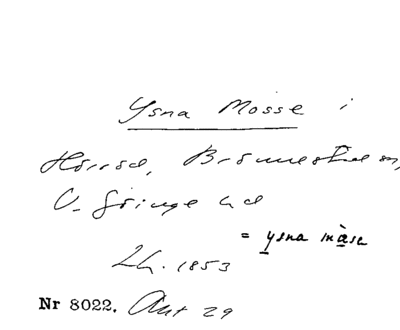 Ysna Mosse i
Hörröd, Brömestad sn,
V. Göinge hd
= ysna måse
Lh. 1853
Nr 8022. Ant 29